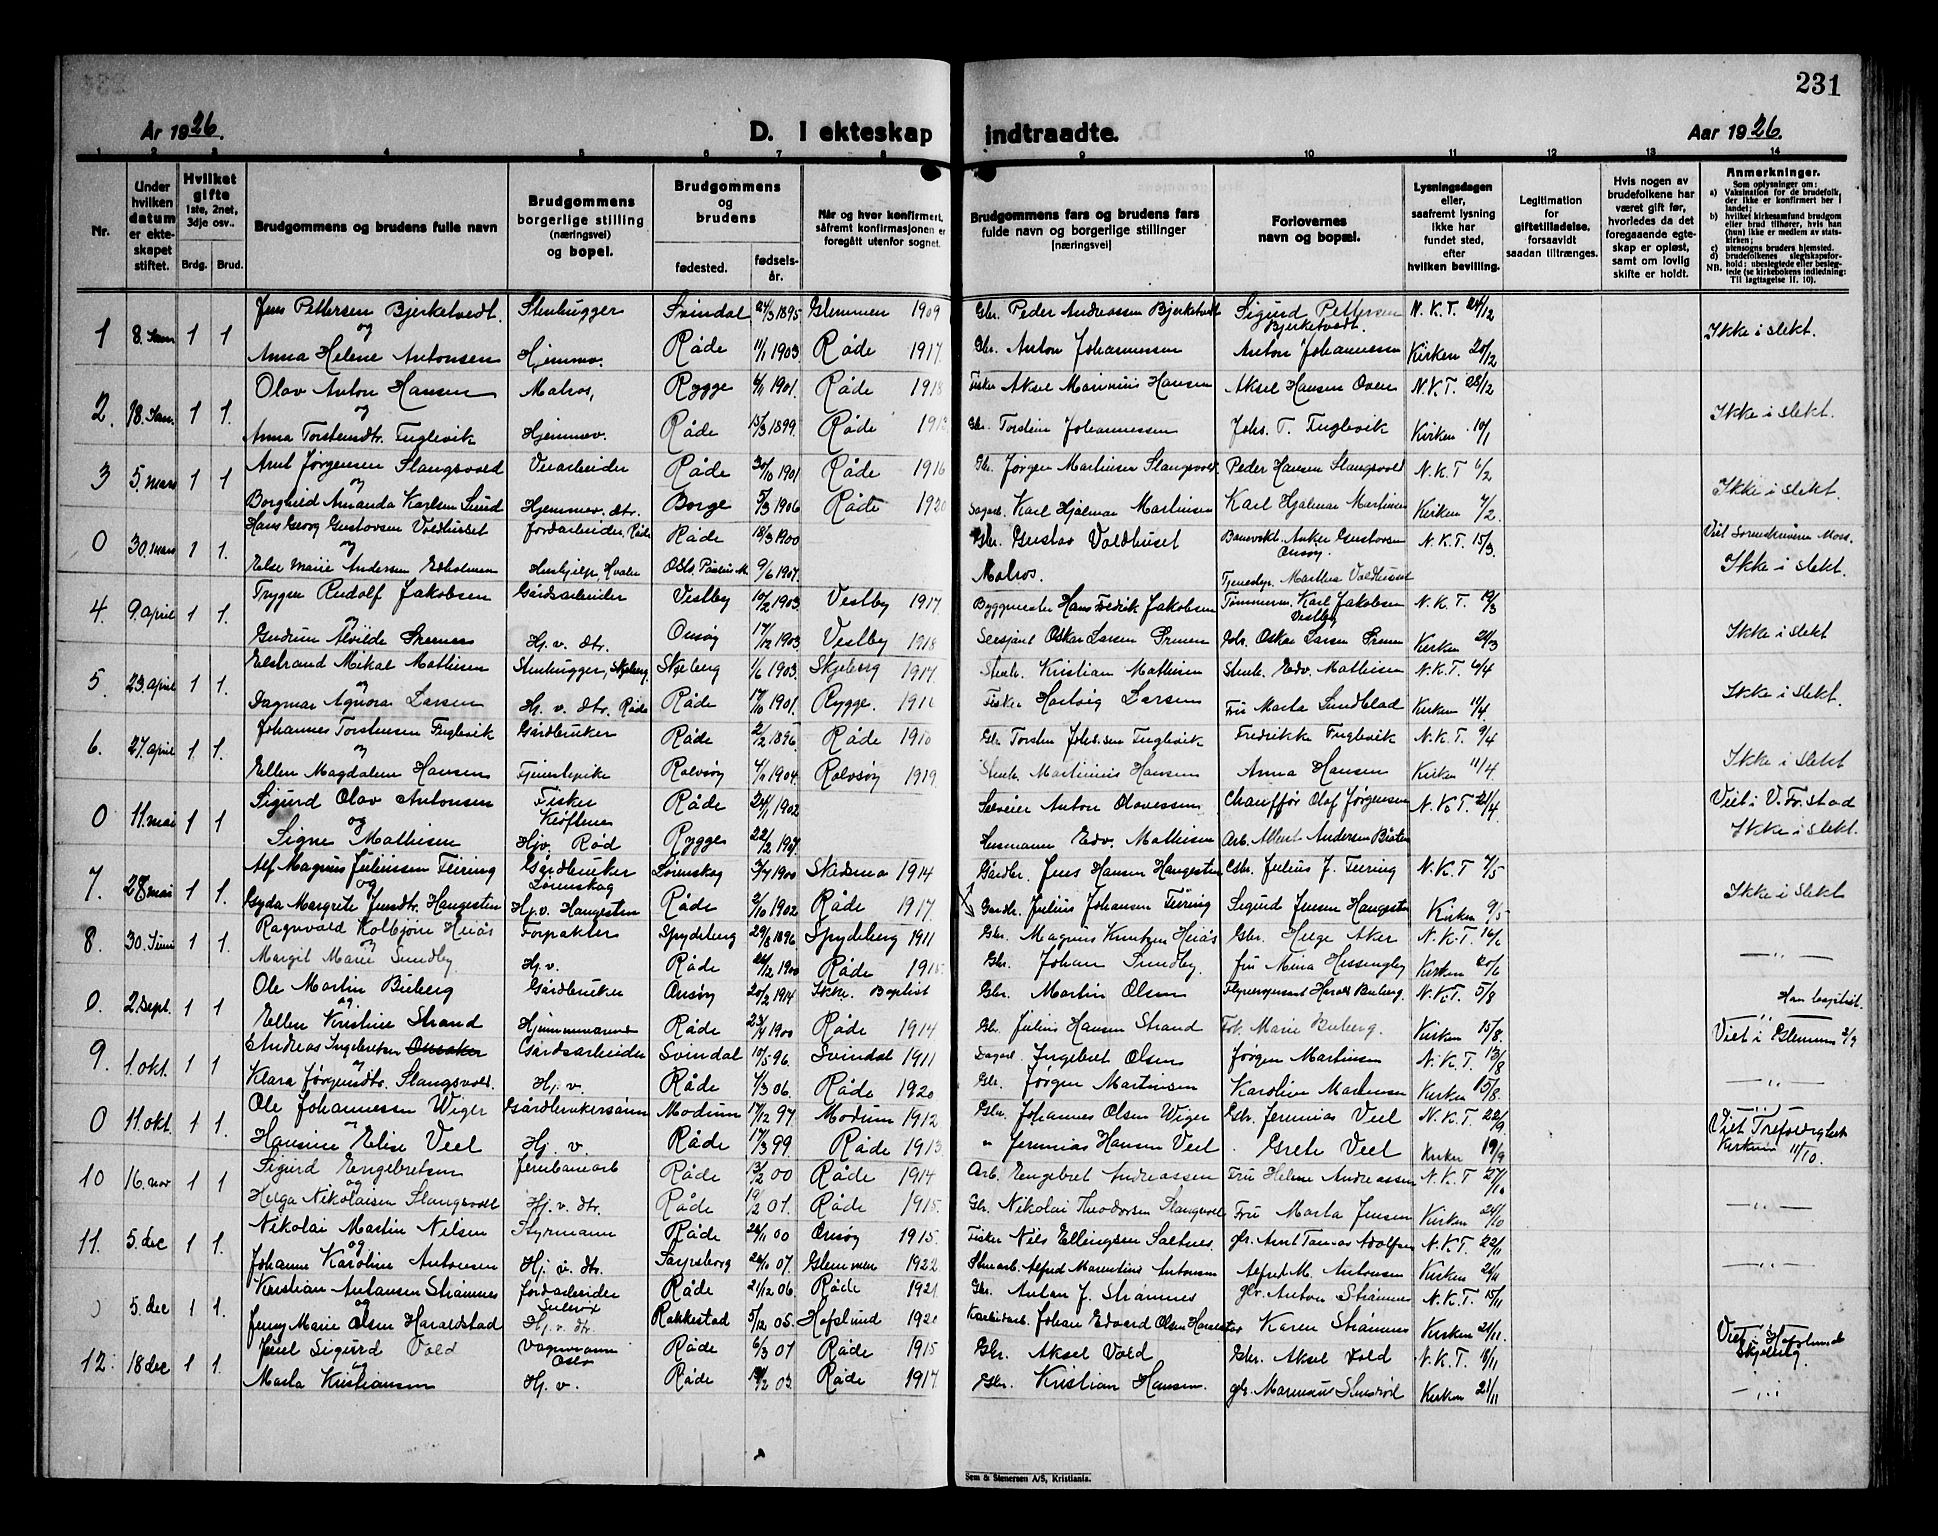 231
År 1926. D. I ekteskap indtraadte. Aar 1926.
1 2 3 4 5 6 7 8 9 10 11 12 13 14
Nr.
Under hvilken datum er ekteskapet stiftet.
Hvilket gifte 1ste, 2net, 3dje osv.. Brdg. Brud.
Brudgommens og brudens fulle navn
Brudgommens borgerlige stilling (næringsvei) og bopel.
Brudgommens og brudens fødested. fødselsår.
Når og hvor konfirmert, såfremt konfirmasjonen er foregått utenfor sognet.
Brudgommens fars og brudens fars fulde navn og borgerlige stillinger [næringsvei]
Forlovernes navn og bopæl.
Lysningsdagen eller, saafremt lysning ikke har fundet sted, efter hvilken bevilling.
Legitimation for giftetilladelse, forsaavidt saadan tiltrænges.
Hvis nogen av brudefolkene har været gift før, hvorledes da det foregaaende egteskap er opløst, samt om lovlig skifte er holdt.
Anmerkninger.
Som oplysninger om:
a) Vaksination for de brudefolk, der ikke er konfirmert her i landet;
b) hvilket kirkesamfund brudgom eller brud tilhører, hvis han (hun) ikke er medlem av statskirken;
c) utensogns bruders hjemsted.
d) brudefolkenes slegtskapsforhold: ubeslegtede eller beslegtede (se kirkebokens indledning: NB. Til iagttagelse II. 10).
1 8. Jan 1 1 Jens Pettersen Bjerketvedt. Stenhugger Svindal 24/3 1895 Glemmen 1909 Gbr. Peder Andreassen Bjerketvedt Sigurd Pettersen Bjerketvedt. N.K.T. 24/12 Ikke i slekt.
og
Anna Helene Antonsen Hjemmev. Råde 11/1 1903 Råde 1917. Gbr. Anton Johannessen Anton Johannessen Kirken 20/12
2. 18. Jan. 1 1. Olav Anton Hansen Matros, Rygge 6/11 1901. Råde 1918 Fisker Aksel Marinius Hansen Aksel Hansen Oven N.K.T. 28/12 Ikke i slekt.
og
Anna Torstensdtr. Fuglevik Hjemmev. Råde 15/3 1899. Råde 1913 Gbr. Torstein Johannessen Johs. T. Fuglevik Kirken 10/1
3 5. mars 1 1 Arnt Jørgensen Slangsvold Veiarbeider Råde 30/10 1901 Råde 1916 Gbr. Jørgen Martinsen Slangsvold Peder Hansen Slangsvold N.K.T 6/2 Ikke i slekt.
og
Borghild Amanda Karlsen Lund Hjemmev. dtr. Borge 5/3 1906 Råde 1920 Sagarb. Karl Hjalmar Martinsen Karl Hjalmar Martinsen Kirken 7/2
0 30. mars 1 1. Hans Georg Gustavsen Voldhuset Jordarbeider, Råde Råde 18/3 1900 Gbr. Gustav Voldhuset Banevokt. Anker Gustavsen Onsøy N.K.T. 15/3. Viet Sorenskriveren Moss.
og
Else Marie Andersen Edholmen Hushjelp, Hvaler 9/6 1907. Matros. Tjenestep. Marthea Voldhuset Ikke i slekt.
4. 9. april 1 1. Trygve Rudolf Jakobsen Gårdsarbeider Vestby 10/2 1903 Vestby 1917. Byggmester Hans Fredrik Jakobsen Tømmerm. Karl Jakobsen Vestby N.K.T. 19/3 Ikke i slekt
og
Gudrun Alvilde Hj. v. dtr. Onsøy 17/12 1903 Vestby 1918 Oskar Larsen Oskar Larsen Kirken 21/3
5. 23. april 1 1. Elstrand Mikal Mathisen Stenhugger, Skjeberg Skjeberg 1/6 1903. Skjeberg 1917. Stenh. Kristian Mathisen Stenh. Edv. Mathisen N.K.T. 6/4 Ikke i slekt.
og
Dagmar Agnora Larsen Hj. v. dtr. Råde Råde 17/10 1901. Rygge. 1916 Fisker Hartvig Larsen Fru Marta Sundblad Kirken 11/4.
6. 27. april 1 1. Johannes Torstensen Fuglevik Gårdbruker Råde 2/2 1896. Råde 1910 Gbr. Torsten Johs.sen Fuglevik Fredrikke Fuglevik N.K.T. 9/4 Ikke i slekt
og
Ellen Magdalene Hansen Tjenestepike Rolvsøy 1904. Rolvsøy 1919 Stenh. Martinius Hansen Anna Hansen Kirken 11/4
0 11. mai 1 1 Sigurd Olav Antonsen Fisker Kjøftene Råde 24/11 1902 Anton Olavessen Chauffør Olaf Jørgensen N.K.T. 21/4. Viet i V. Fr.stad
og
Signe Mathisen Hjv. Rød Rygge 22/2 1907. Husmann Edv. Mathisen Arb. Albert Andersen Ikke i slekt.
7. 28 mai 1 1. Alf Magnus Juliussen Feiring Gårdbruker Lørenskog Lørenskog 1900 Skedsmo 1914 Gårdbr. Jens Hansen Hangesten Gbr. Julius J. Feiring N.K.T 7/5 Ikke i slekt
og
Gyda Margrete Jensdtr. Hangesten Hj. v. Hangesten Råde 2/10 1902 Råde 1917. Gårdbr. Julius Johansen Feiring Sigurd Jensen Hangesten Kirken 9/5
8. 30. Juni 1 1. Ragnvald Kolbjørn Heiås Forpakter Spydeberg 29/8 1896 Spydeberg 1911 Gbr. Magnus Knutzen Heiås Gbr. Helge Aker N.K.T. 16/6 — " —
og
Margit Marie Sundby. Hj. v. Råde 1900 Råde 1915. Gbr. Johan Sundby. Fru Mina Hessengby Kirken 20/6
0. 2. sept. 1 1 Ole Martin Buberg Gårdbruker Onsøy 20/2 1914 Ikke. Baptist Gbr. Martin Olsen Harald Buberg. N.K.T. 5/8 Han baptist.
og
Ellen Kristine Strand Hjemmeværende Råde 23/4 1900 Råde 1914 Gbr. Julius Hansen Strand Frk. Marie Buberg. Kirken 15/8. Viet i Glemmen 2/9
9. 1. okt. 1 1 Andreas Ingebretsen Onsaker Gårdsarbeider Svindal 10/5 96. Svindal 1911 Sagarb. Ingebret Olsen Jørgen Martinsen N.K.T. 13/8
og
Klara Jørgensdtr. Slangsvold. Hj. v. Råde 4/3 06. Råde 1920 Gbr. Jørgen Martinsen Karoline Martinsen Kirken 15/8. — " —
0 11. okt. 1 1. Ole Johannessen Wiger Gårdbrukersønn Modum 17/12 97 Modum 1912 Gbr. Johannes Olsen Wiger Gbr. Jeremias Veel N.K.T. 22/9 Viet Trefoldighets kirken 11/10.
og
Hansine Elise Veel Hj. v. Råde 17/3 99. Råde 1913. " Jeremias Hansen Veel Grete Veel Kirken 19/9
10 16. nov 1 1 Sigurd Engebretsen Jernbanearb Råde 13/2 00 Råde 1914 Arb. Engebret Andreassen Fru Helene Andreassen N.K.T 27/10 — " —
og
Helga Nikolaisen Slangsvold Hj. v. dtr. Råde 19/2 01. Råde 1915. Gbr. Nikolai Theodorsen Slangsvold Fru Marta Jensen Kirken 24/10
11. 5. dec 1 1. Nikolai Martin Nilsen Styrmann Råde 00 Onsøy 1915. Fisker Nils Ellingsen Saltnes. gbr. Arnt Tomas Adolfsen N.K.T. 22/11 — " —
og
Johanne Karoline Antonsen Hj. v. dtr. Sarpsborg 07. Glemmen 1922 Alfred Marentius Antonsen Alfred M. Antonsen Kirken 21/11
0 5. dec 1 1. Kristian Antonsen Strømnes Jordarbeider Råde 21/12 06. Råde 1921 Gbr. Anton J. Strømnes gbr. Anton Strømnes N.K.T. 15/11
og
Jenny Marie Olsen Haraldstad Hj. v. dtr. Rakkestad 5/12 05. Hafslund 1920 Johan Edvard Olsen Haraldstad Karen Strømnes Kirken 21/11. Viet i Hafslund Skjeberg.
12. 18 dec 1 1. Juel Sigurd Vold Vognmann Oslo Råde 6/3 01 Råde 1915 Gbr. Aksel Vold Gbr. Aksel Vold N.K.T. 18/11
og
Marta Kristiansen Hj. v. Råde 03. Råde 1917. Gbr. Kristian Hansen. gbr. Marenius Kirken 21/11 — " —
Sem & Stenersen A/S, Kristiania.